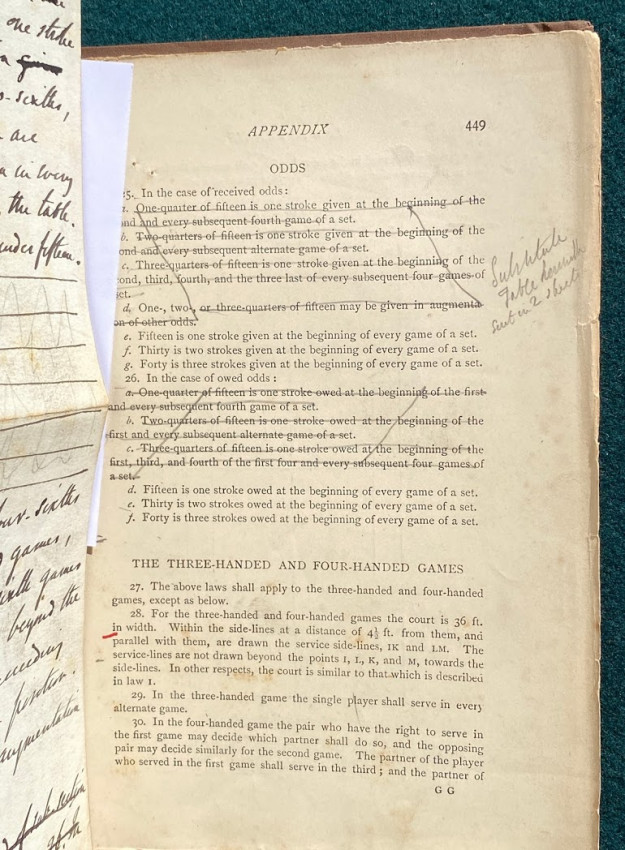 one stroke
given
-sixths,
are
in every
the table.
under fifteen.
our-sixths
games,
games
beyond the
position.
augmentation
APPENDIX 449
ODDS
25. In the case of received odds:
a. One-quarter of fifteen is one stroke given at the beginning of the
ond and every subsequent fourth game of a set.
b. Two-quarters of fifteen is one stroke given at the beginning of the
ond and every subsequent alternate game of a set.
c. Three-quarters of fifteen is one stroke given at the beginning of the
ond, third, fourth, and the three last of every subsequent four games of
set.
d. One-, two-, or three-quarters of fifteen may be given in augmenta-
on of other odds.
e. Fifteen is one stroke given at the beginning of every game of a set.
f. Thirty is two strokes given at the beginning of every game of a set.
g. Forty is three strokes given at the beginning of every game of a set.
26. In the case of owed odds:
a. One-quarter of fifteen is one stroke owed at the beginning of the first
and every subsequent fourth game of a set.
b. Two-quarters of fifteen is one stroke owed at the beginning of the
first and every subsequent alternate game of a set.
c. Three-quarters of fifteen is one stroke owed at the beginning of the
first, third, and fourth of the first four and every subsequent four games of
a set.
d. Fifteen is one stroke owed at the beginning of every game of a set.
e. Thirty is two strokes owed at the beginning of every game of a set.
f. Forty is three strokes owed at the beginning of every game of a set.
Substitute
Table
sent in 2 sheets
THE THREE-HANDED AND FOUR-HANDED GAMES
27. The above laws shall apply to the three-handed and four-handed
games, except as below.
28. For the three-handed and four-handed games the court is 36 ft.
in width. Within the side-lines at a distance of 4½ ft. from them, and
parallel with them, are drawn the service side-lines, IK and LM. The
service-lines are not drawn beyond the points I, L, K, and M, towards the
side-lines. In other respects, the court is similar to that which is described
in law 1.
29. In the three-handed game the single player shall serve in every
alternate game.
30. In the four-handed game the pair who have the right to serve in
the first game may decide which partner shall do so, and the opposing
pair may decide similarly for the second game. The partner of the player
who served in the first game shall serve in the third; and the partner of
G G